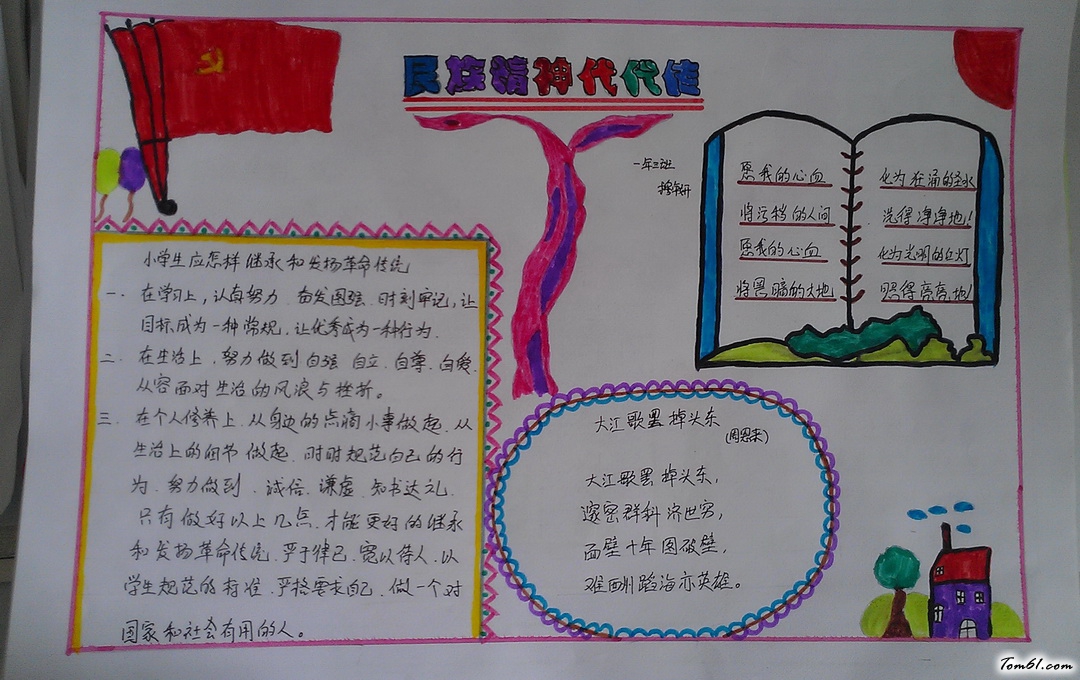 民族精神代代传
一年三班
愿我的心血
将污秽的人间
愿我的心血
将黑暗的大地
化为汹涌的圣水
洗得净净地!
化为光明的红灯
照得亮亮地!
小学生应怎样继承和发扬革命传统
一、在学习上,认真努力 奋发图强 时刻牢记,让
目标成为一种常规,让优秀成为一种行为.
二、在生活上,努力做到自强 自立、自尊、自爱.
从容面对生活的风浪与挫折。
三、在个人修养上、从身边的点滴小事做起、从
生活上的细节做起、时时规范自己的行
为、努力做到、诚信、谦虚、知书达礼.
只有做好以上几点、才能更好的继承
和发扬革命传统、严于律己、宽以待人、以
学生规范的标准、严格要求自己、做一个对
国家和社会有用的人。
大江歌罢掉头东
(周恩来)
大江歌罢掉头东,
邃密群科济世穷,
面壁十年图破壁,
难酬蹈海亦英雄。
Tom61.com